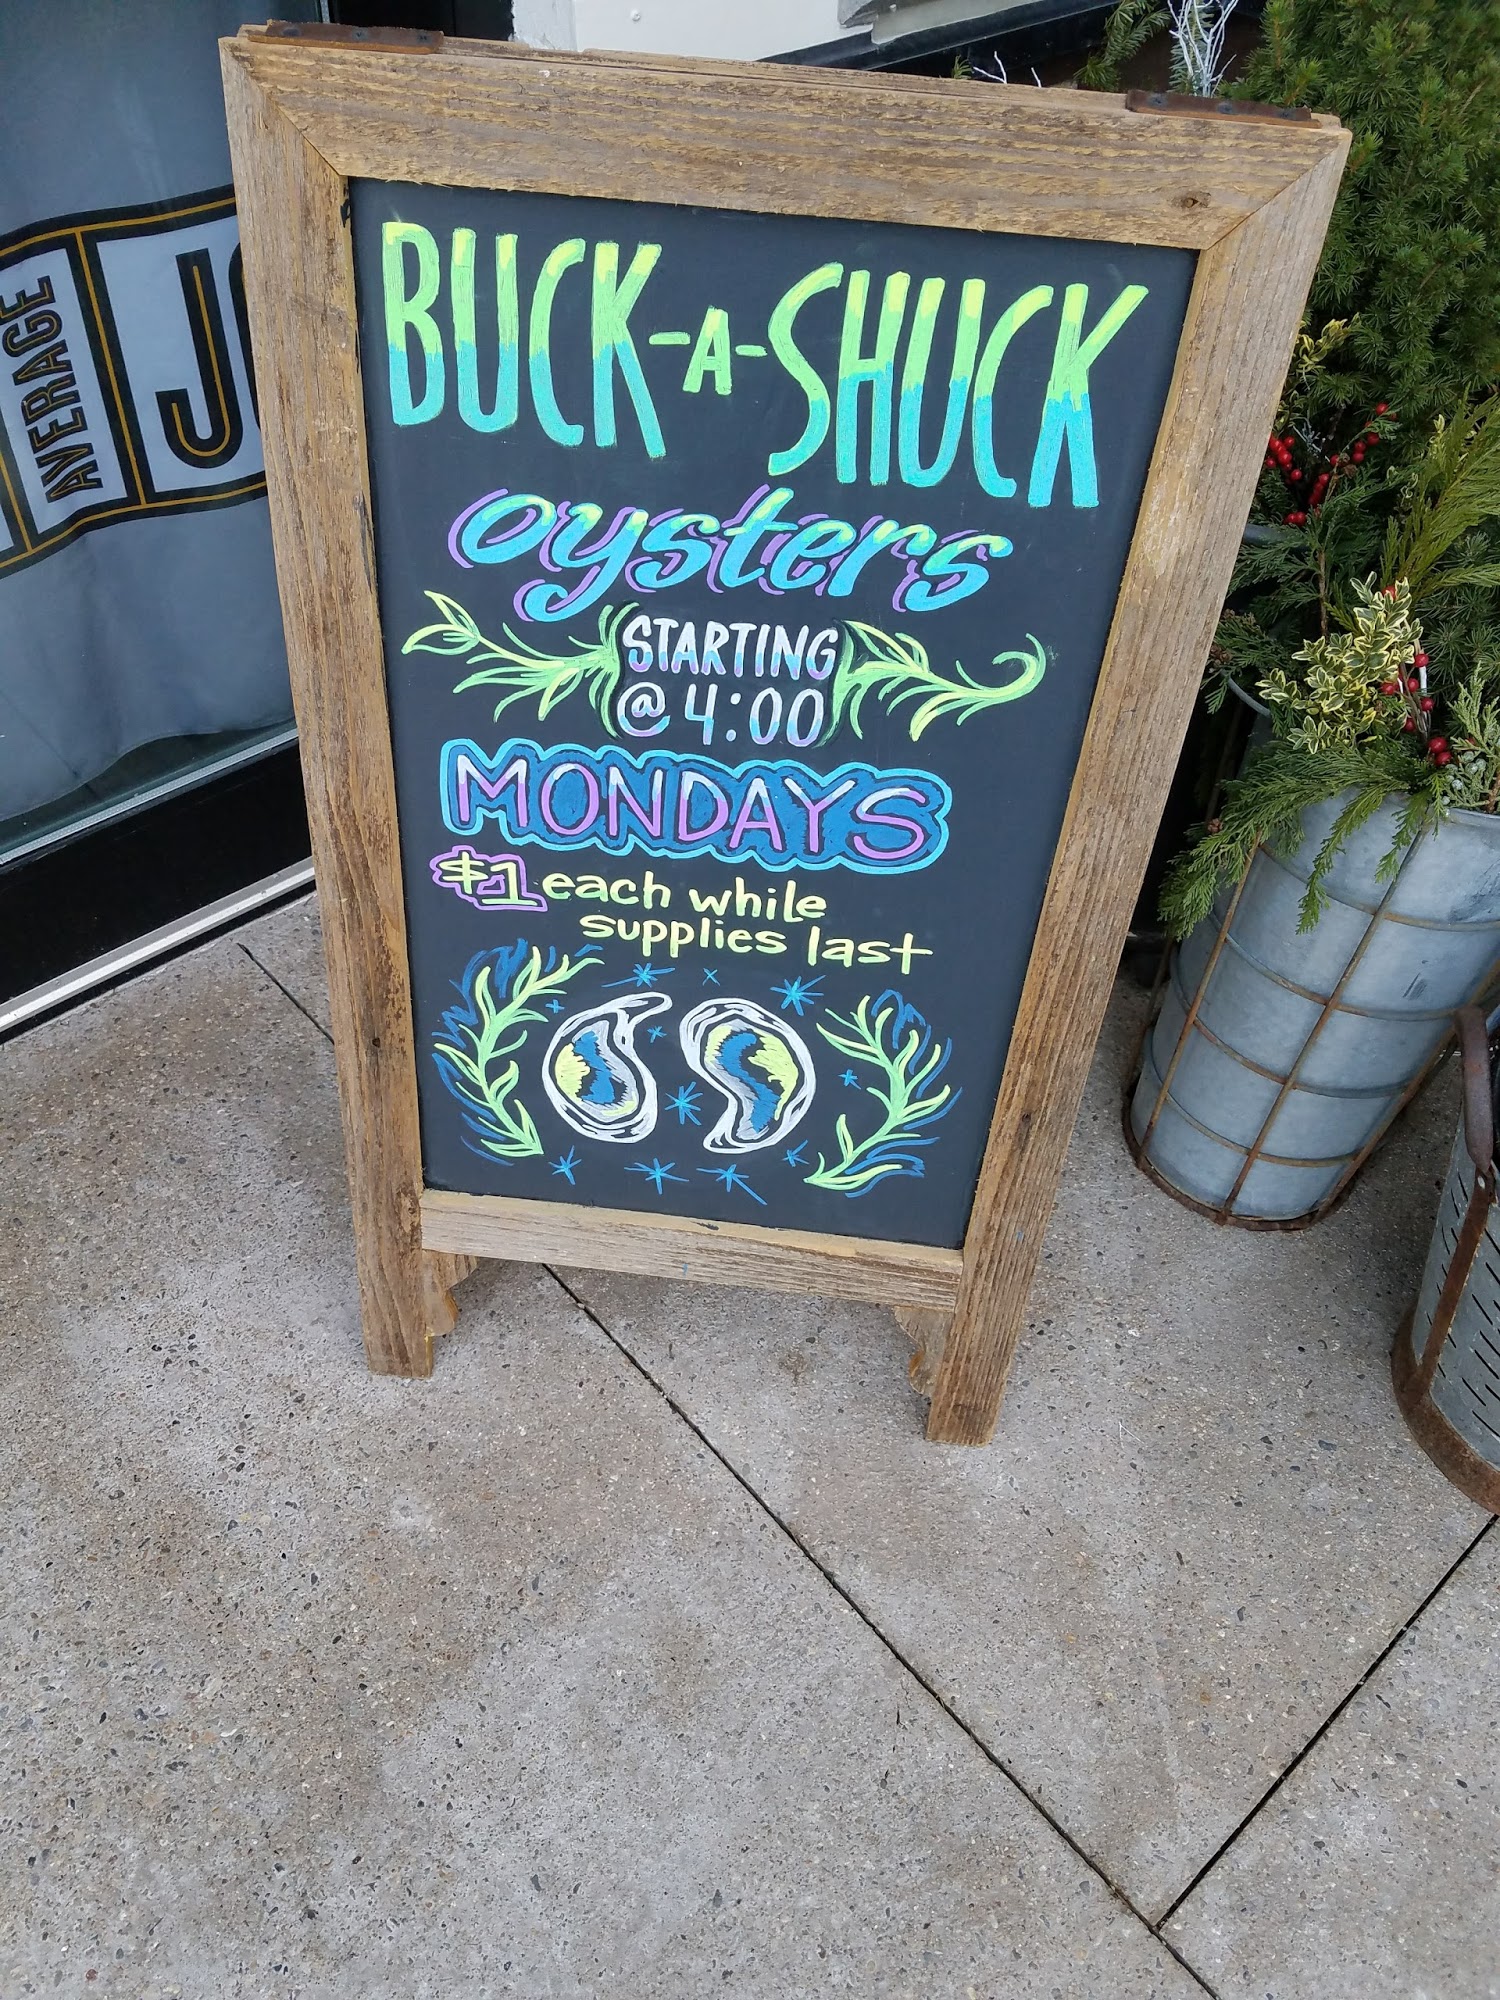 BUCK-A-SHUCK
oysters
STARTING
@ 4:00
MONDAYS
$1 each while
supplies last
AVERAGE